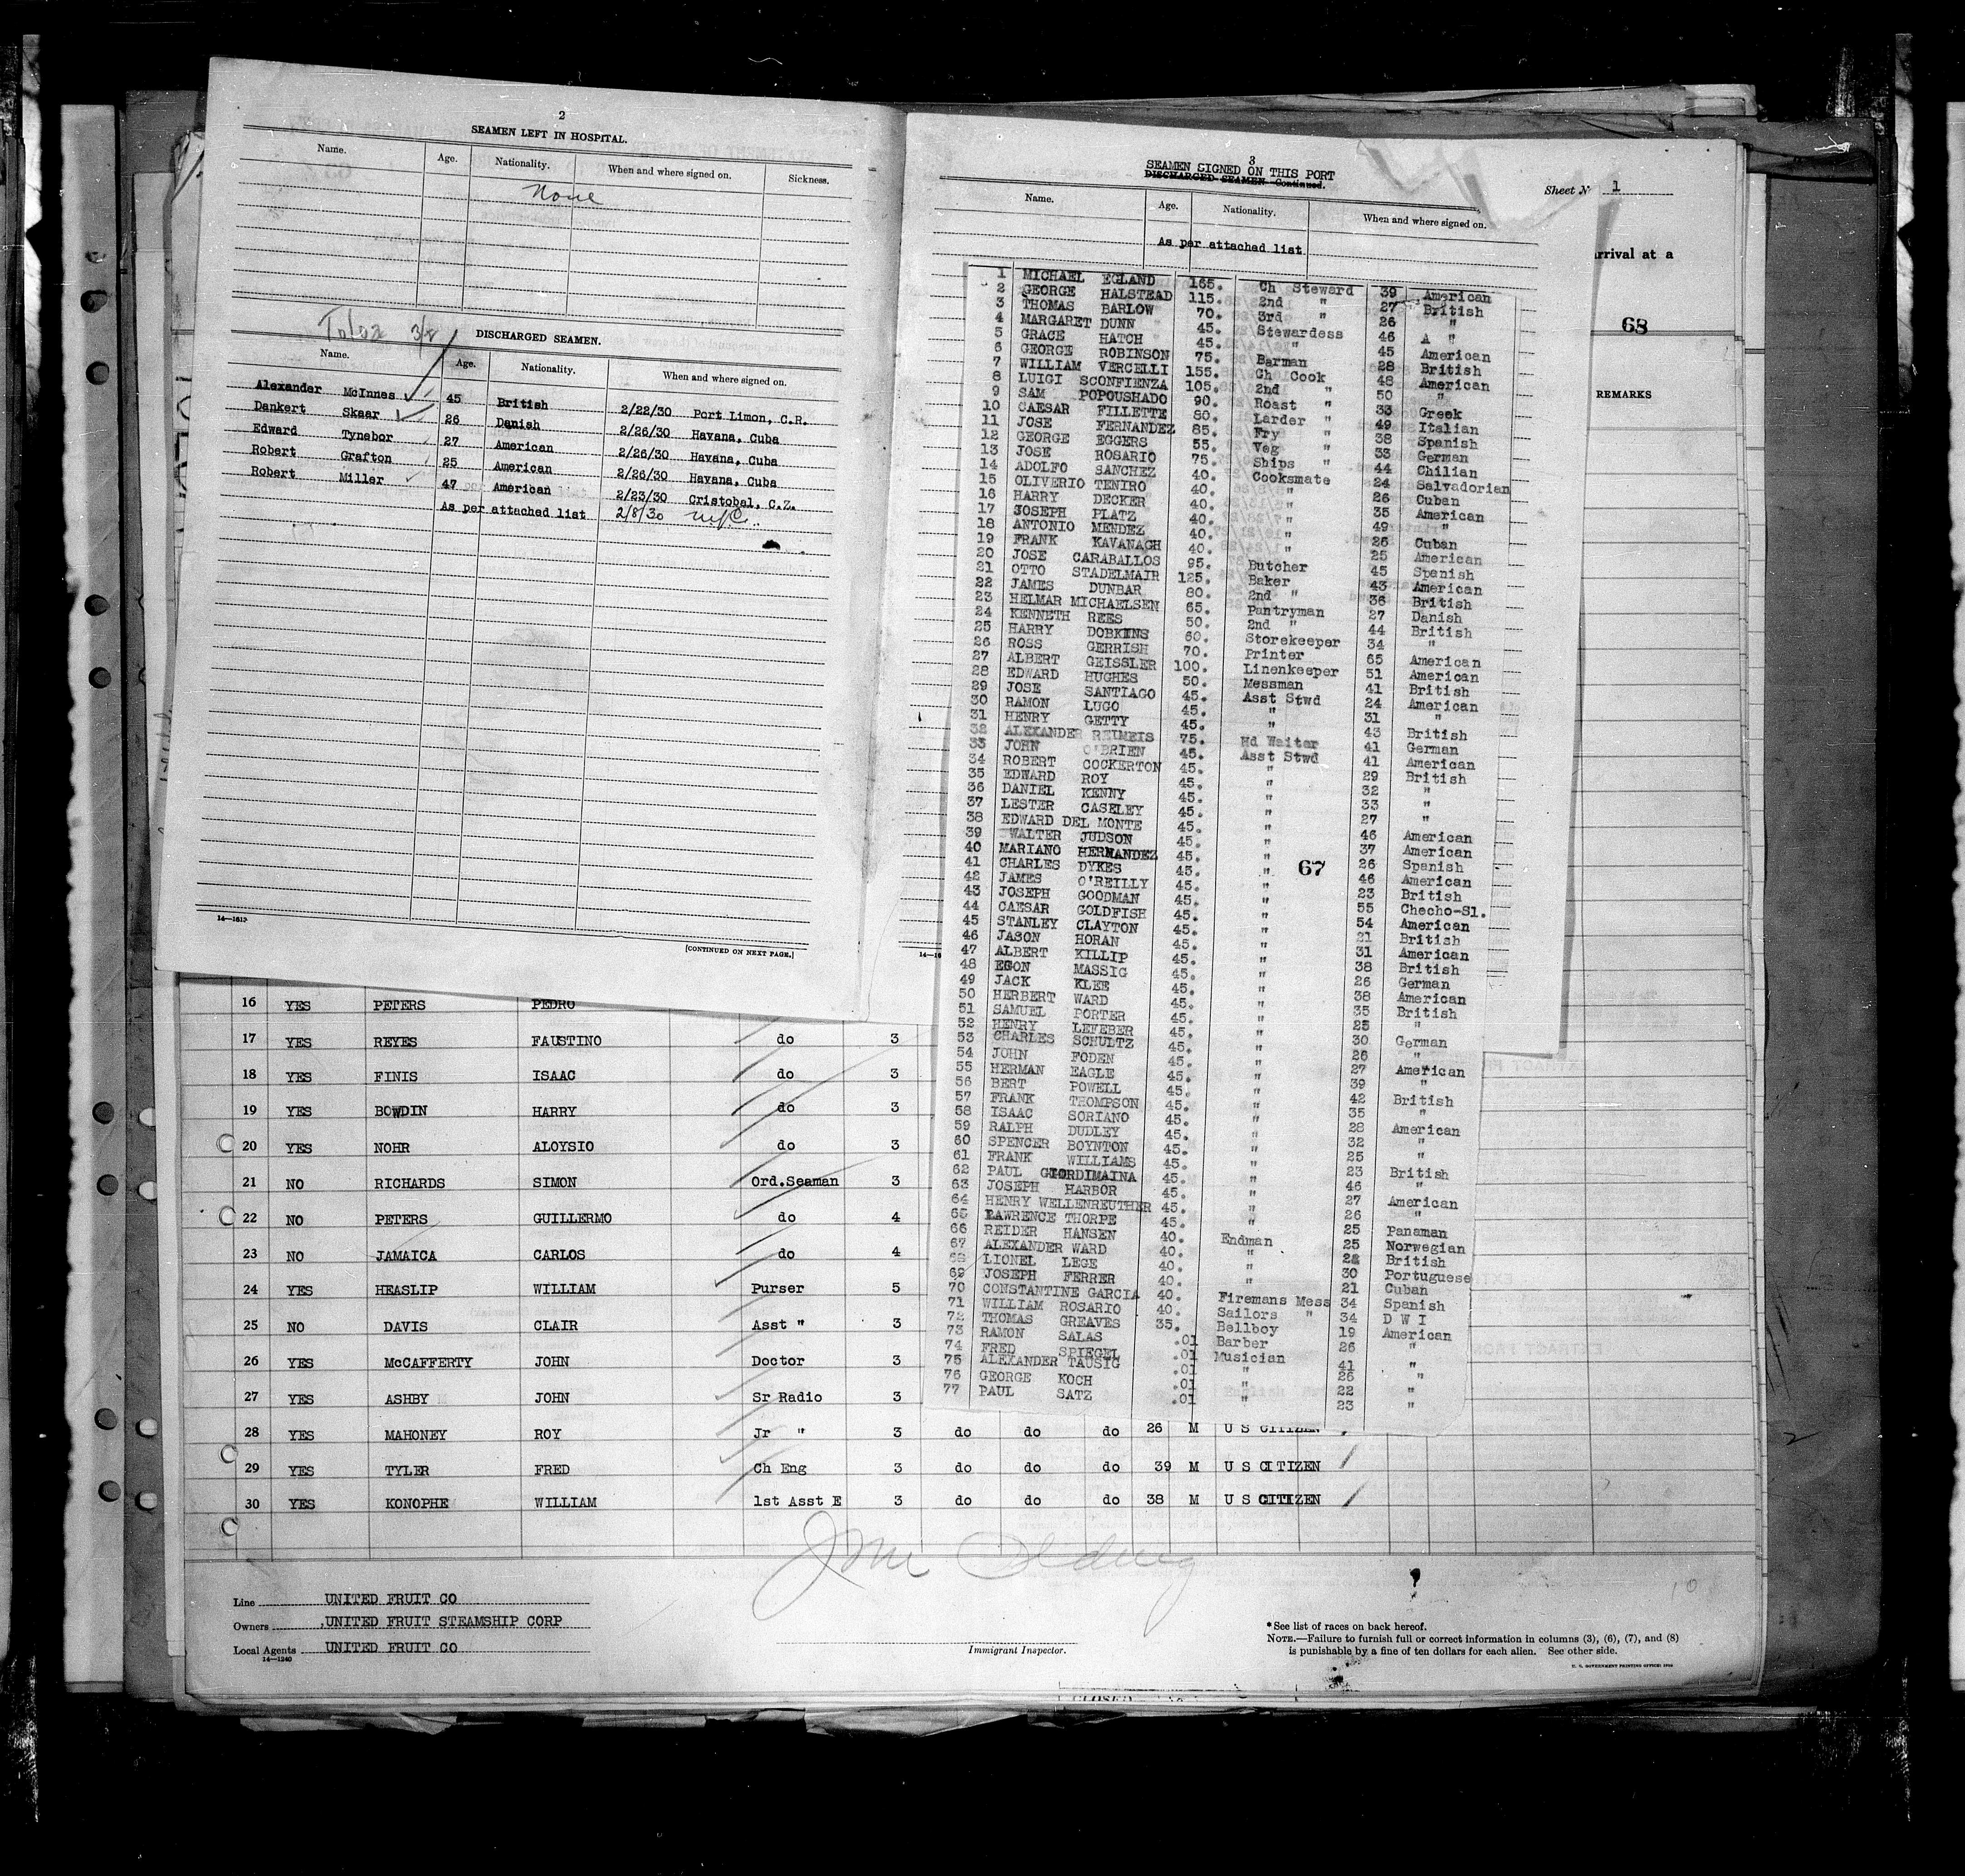 2
SEAMEN LEFT IN HOSPITAL.
Name. Age. Nationality. When and where signed on. Sickness.
None
Toloa 3/8
DISCHARGED SEAMEN.
Name. Age. Nationality. When and where signed on.
Alexander McInnes 45 British 2/22/30 Port Limon, C.R.
Dankert Skaar 26 Danish 2/26/30 Havana, Cuba
Edward Tynebor 27 American 2/26/30 Havana, Cuba
Robert Grafton 25 American 2/26/30 Havana, Cuba
Robert Miller 47 American 2/23/30 Cristobal, C.Z.
As per attached list 2/8/30 nyc.
14—1613
[CONTINUED ON NEXT PAGE.]
3
SEAMEN SIGNED ON THIS PORT
DISCHARGED SEAMEN—Continued.
Sheet N 1
Name. Age. Nationality. When and where signed on.
As per attached list
rrival at a
68
REMARKS
1 MICHAEL EGLAND 165. Ch Steward 39 American
2 GEORGE HALSTEAD 115. 2nd " 27 British
3 THOMAS BARLOW 70. 3rd " 26 "
4 MARGARET DUNN 45. Stewardess 46 A "
5 GRACE HATCH 45. " 45 American
6 GEORGE ROBINSON 75. Barman 28 British
7 WILLIAM VERCELLI 155. Ch Cook 48 American
8 LUIGI SCONFIENZA 105. 2nd " 50 "
9 SAM POPOUSHADO 90. Roast " 33 Greek
10 CAESAR FILLETTE 80. Larder " 49 Italian
11 JOSE FERNANDEZ 85. Fry " 38 Spanish
12 GEORGE EGGERS 55. Veg " 33 German
13 JOSE ROSARIO 75. Ships " 44 Chilian
14 ADOLFO SANCHEZ 40. Cooksmate 24 Salvadorian
15 OLIVERIO TENIRO 40. " 26 Cuban
16 HARRY DECKER 40. " 35 American
17 JOSEPH PLATZ 40. " 49 "
18 ANTONIO MENDEZ 40. " 26 Cuban
19 FRANK KAVANAGH 40. " 25 American
20 JOSE CARABALLOS 95. Butcher 45 Spanish
21 OTTO STADELMAIR 125. Baker 43 American
22 JAMES DUNBAR 80. 2nd " 36 British
23 HELMAR MICHAELSEN 65. Pantryman 27 Danish
24 KENNETH REES 50. 2nd " 44 British
25 HARRY DOBKINS 60. Storekeeper 34 "
26 ROSS GERRISH 70. Printer 65 American
27 ALBERT GEISSLER 100. Linenkeeper 51 American
28 EDWARD HUGHES 50. Messman 41 British
29 JOSE SANTIAGO 45. Asst Stwd 24 American
30 RAMON LUGO 45. " 31 "
31 HENRY GETTY 45. " 43 British
32 ALEXANDER REUMEIS 75. Hd Waiter 41 German
33 JOHN O'BRIEN 45. Asst Stwd 41 American
34 ROBERT COCKERTON 45. " 29 British
35 EDWARD ROY 45. " 32 "
36 DANIEL KENNY 45. " 33 "
37 LESTER CASELEY 45. " 27 "
38 EDWARD DEL MONTE 45. " 46 American
39 WALTER JUDSON 45. " 37 American
40 MARIANO HERNANDEZ 45. " 26 Spanish
67
41 CHARLES DYKES 45. " 46 American
42 JAMES O'REILLY 45. " 23 British
43 JOSEPH GOODMAN 45. " 55 Checho-Sl.
44 CAESAR GOLDFISH 45. " 54 American
45 STANLEY CLAYTON 45. " 21 British
46 JASON HORAN 45. " 31 American
47 ALBERT KILLIP 45. " 38 British
48 EGON MASSIG 45. " 26 German
49 JACK KLEE 45. " 38 American
50 HERBERT WARD 45. " 35 British
51 SAMUEL PORTER 45. " 25 "
52 HENRY LEFEBER 45. " 30 German
53 CHARLES SCHULTZ 45. " 26 "
54 JOHN FODEN 45. " 27 American
55 HERMAN EAGLE 45. " 39 "
56 BERT POWELL 45. " 42 British
57 FRANK THOMPSON 45. " 35 "
58 ISAAC SORIANO 45. " 28 American
59 RALPH DUDLEY 45. " 32 "
60 SPENCER BOYNTON 45. " 25 "
61 FRANK WILLIAMS 45. " 23 British
62 PAUL GIORDIMAINA 45. " 46 "
63 JOSEPH HARBOR 45. " 27 American
64 HENRY WELLENREUTHER 45. " 26 "
65 LAWRENCE THORPE 45. " 25 Panaman
66 REIDER HANSEN 40. Endman 25 Norwegian
67 ALEXANDER WARD 40. " 28 British
68 LIONEL LEGE 40. " 30 Portuguese
69 JOSEPH FERRER 40. " 21 Cuban
70 CONSTANTINE GARCIA 40. Firemans Mess 34 Spanish
71 WILLIAM ROSARIO 40. Sailors " 34 D W I
72 THOMAS GREAVES 35. Bellboy 19 American
73 RAMON SALAS .01 Barber 26 "
74 FRED SPIEGEL .01 Musician 41 "
75 ALEXANDER TAUSIG .01 " 26 "
76 GEORGE KOCH .01 " 22 "
77 PAUL SATZ .01 " 23 "
14—16
16 YES PETERS PEDRO
17 YES REYES FAUSTINO do 3
18 YES FINIS ISAAC do 3
19 YES BOWDIN HARRY do 3
20 YES NOHR ALOYSIO do 3
21 NO RICHARDS SIMON Ord.Seaman 3
22 NO PETERS GUILLERMO do 4
23 NO JAMAICA CARLOS do 4
24 YES HEASLIP WILLIAM Purser 5
25 NO DAVIS CLAIR Asst " 3
26 YES McCAFFERTY JOHN Doctor 3
27 YES ASHBY JOHN Sr Radio 3
28 YES MAHONEY ROY Jr " 3 do do do 26 M U S CITIZEN
29 YES TYLER FRED Ch Eng 3 do do do 39 M U S CITIZEN
30 YES KONOPHE WILLIAM 1st Asst E 3 do do do 38 M U S CITIZEN
Line UNITED FRUIT CO
Owners UNITED FRUIT STEAMSHIP CORP
Local Agents UNITED FRUIT CO
14—1240
Immigrant Inspector.
10
*See list of races on back hereof.
NOTE.—Failure to furnish full or correct information in columns (3), (6), (7), and (8)
is punishable by a fine of ten dollars for each alien. See other side.
U. S. GOVERNMENT PRINTING OFFICE: